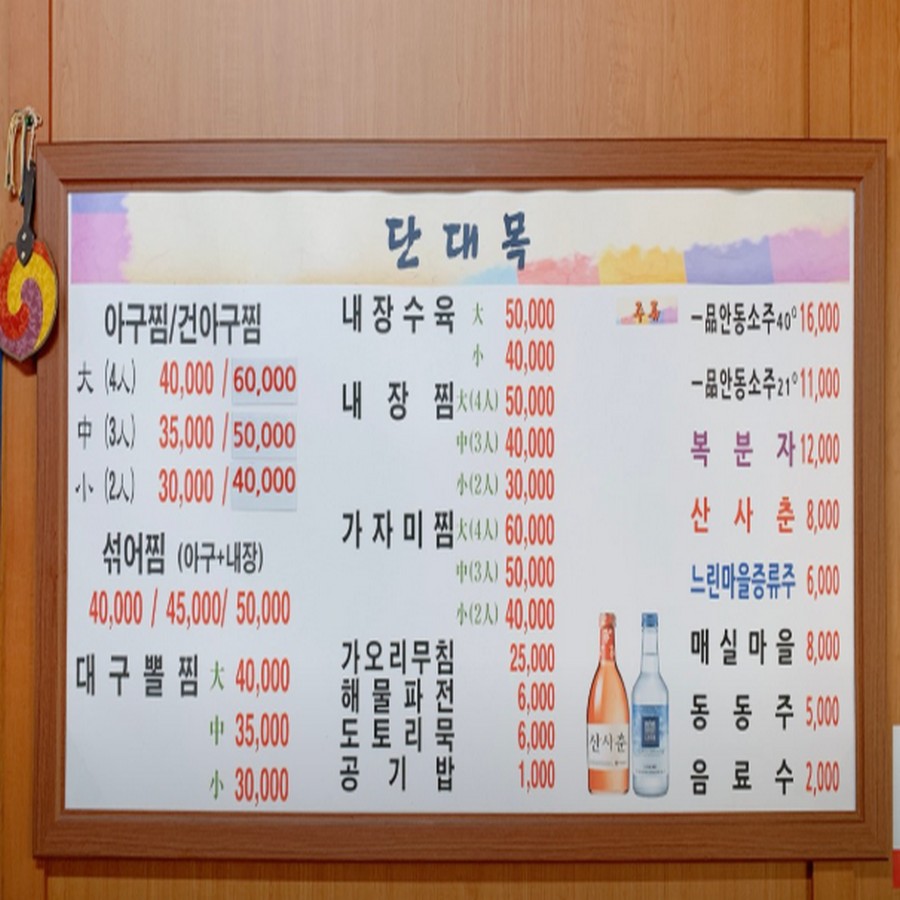 단대목
아구찜/건아구찜
大 (4人) 40,000 / 60,000
中 (3人) 35,000 / 50,000
小 (2人) 30,000 / 40,000
섞어찜 (아구+내장)
40,000 / 45,000/ 50,000
대구뽈찜 大 40,000
中 35,000
小 30,000
내장수육 大 50,000
小 40,000
내장찜 大(4人) 50,000
中(3人) 40,000
小(2人) 30,000
가자미찜 大(4人) 60,000
中(3人) 50,000
小(2人) 40,000
가오리무침 25,000
해물파전 6,000
도토리묵 6,000
공기밥 1,000
주류
一品안동소주40° 16,000
一品안동소주21° 11,000
복분자 12,000
산사춘 8,000
느린마을증류주 6,000
매실마을 8,000
동동주 5,000
음료수 2,000
산사춘